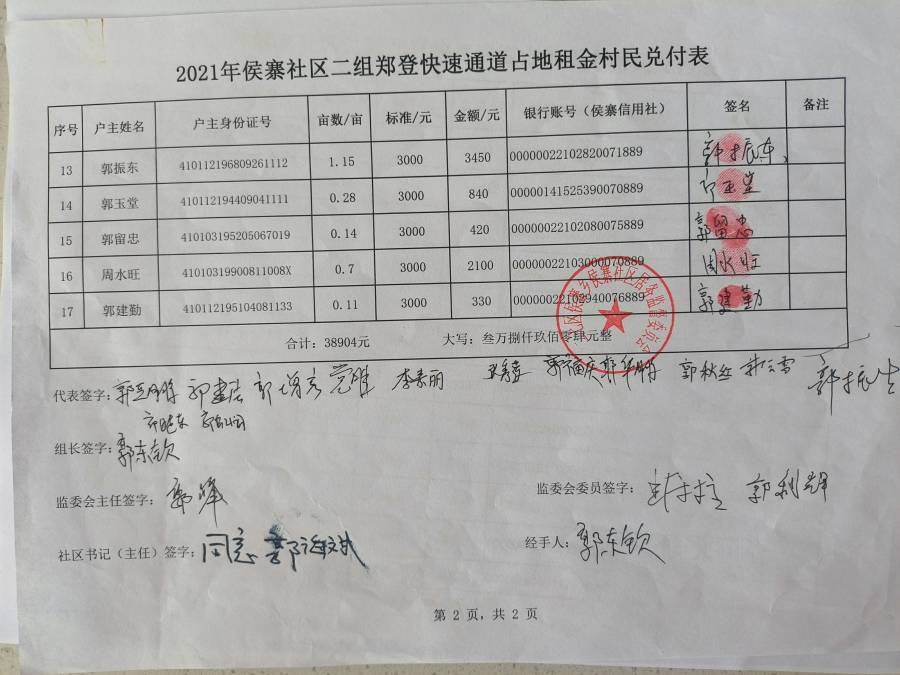 2021年侯寨社区二组郑登快速通道占地租金村民兑付表
序号 户主姓名 户主身份证号 亩数/亩 标准/元 金额/元 银行账号（侯寨信用社） 签名 备注
13 郭振东 410112196809261112 1.15 3000 3450 00000022102820071889 郭振东
14 郭玉堂 410112194409041111 0.28 3000 840 00000141525390070889 郭玉堂
15 郭留忠 410103195205067019 0.14 3000 420 00000022102080075889 郭留忠
16 周水旺 41010319900811008X 0.7 3000 2100 00000022103000070889 周水旺
17 郭建勤 410112195104081133 0.11 3000 330 00000022102940076889 郭建勤
合计：38904元 大写：叁万捌仟玖佰零肆元整
代表签字： 李素丽 郭秋红
组长签字：郭东钦
监委会主任签字：郭峰 监委会委员签字： 郭利
社区书记（主任）签字：同意 经手人：郭东钦
第 2 页，共 2 页